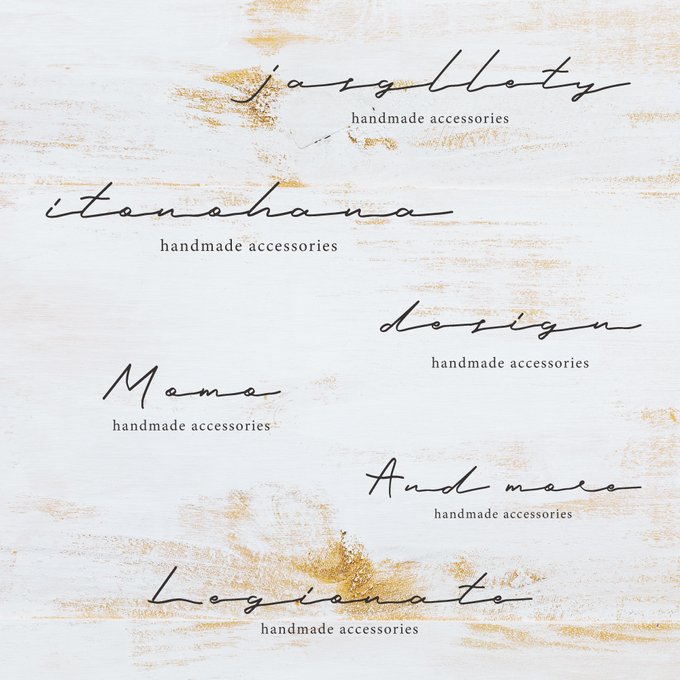 jasgllety
handmade accessories
itonohana
handmade accessories
design
handmade accessories
Momo
handmade accessories
And more
handmade accessories
Legionate
handmade accessories